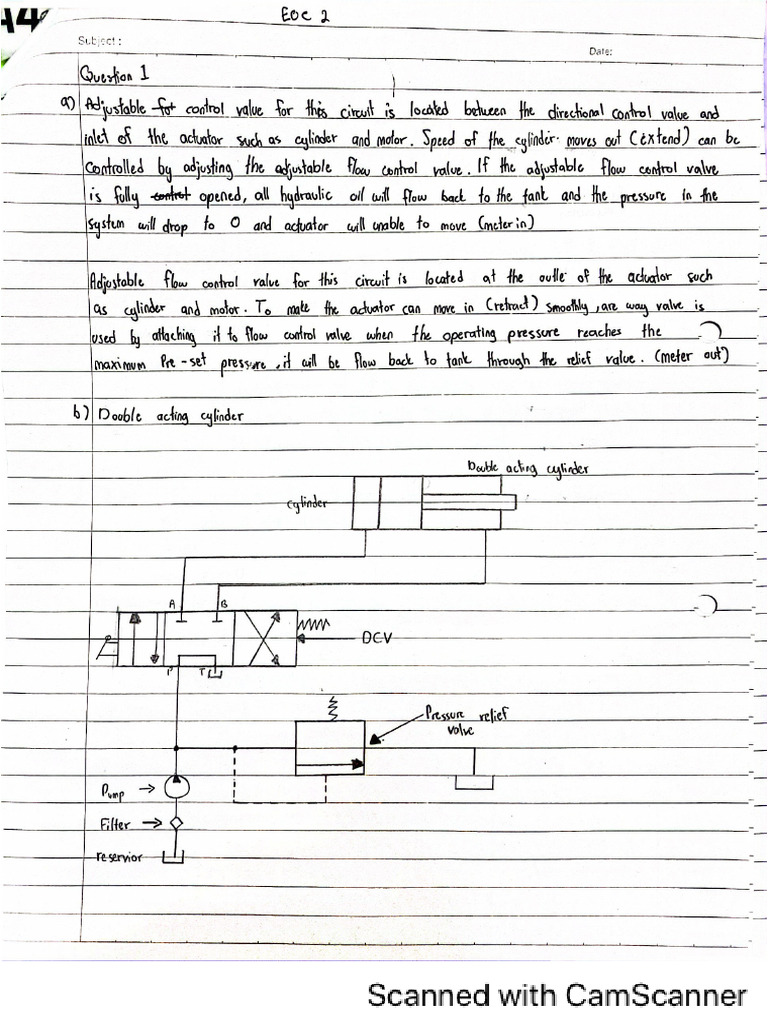 A4
EOC 2
Subject :
Date:
Question 1
a) Adjustable for control value for this circuit is located between the directional control value and
inlet of the actuator such as cylinder and motor. Speed of the cylinder moves out (extend) can be
controlled by adjusting the adjustable flow control value. If the adjustable flow control valve
is fully control opened, all hydraulic oil will flow back to the tank and the pressure in the
system will drop to 0 and actuator will unable to move (meter in)
Adjustable flow control value for this circuit is located at the outle of the actuator such
as cylinder and motor. To make the actuator can move in (retract) smoothly, are way valve is
used by attaching it to flow control value when the operating pressure reaches the
maximum Pre-set pressure, it will be flow back to tank through the relief value. (meter out)
b) Double acting cylinder
Double acting cylinder
cylinder
A B
DCV
P T
Pressure relief
valve
Pump
Filter
reservior
Scanned with CamScanner